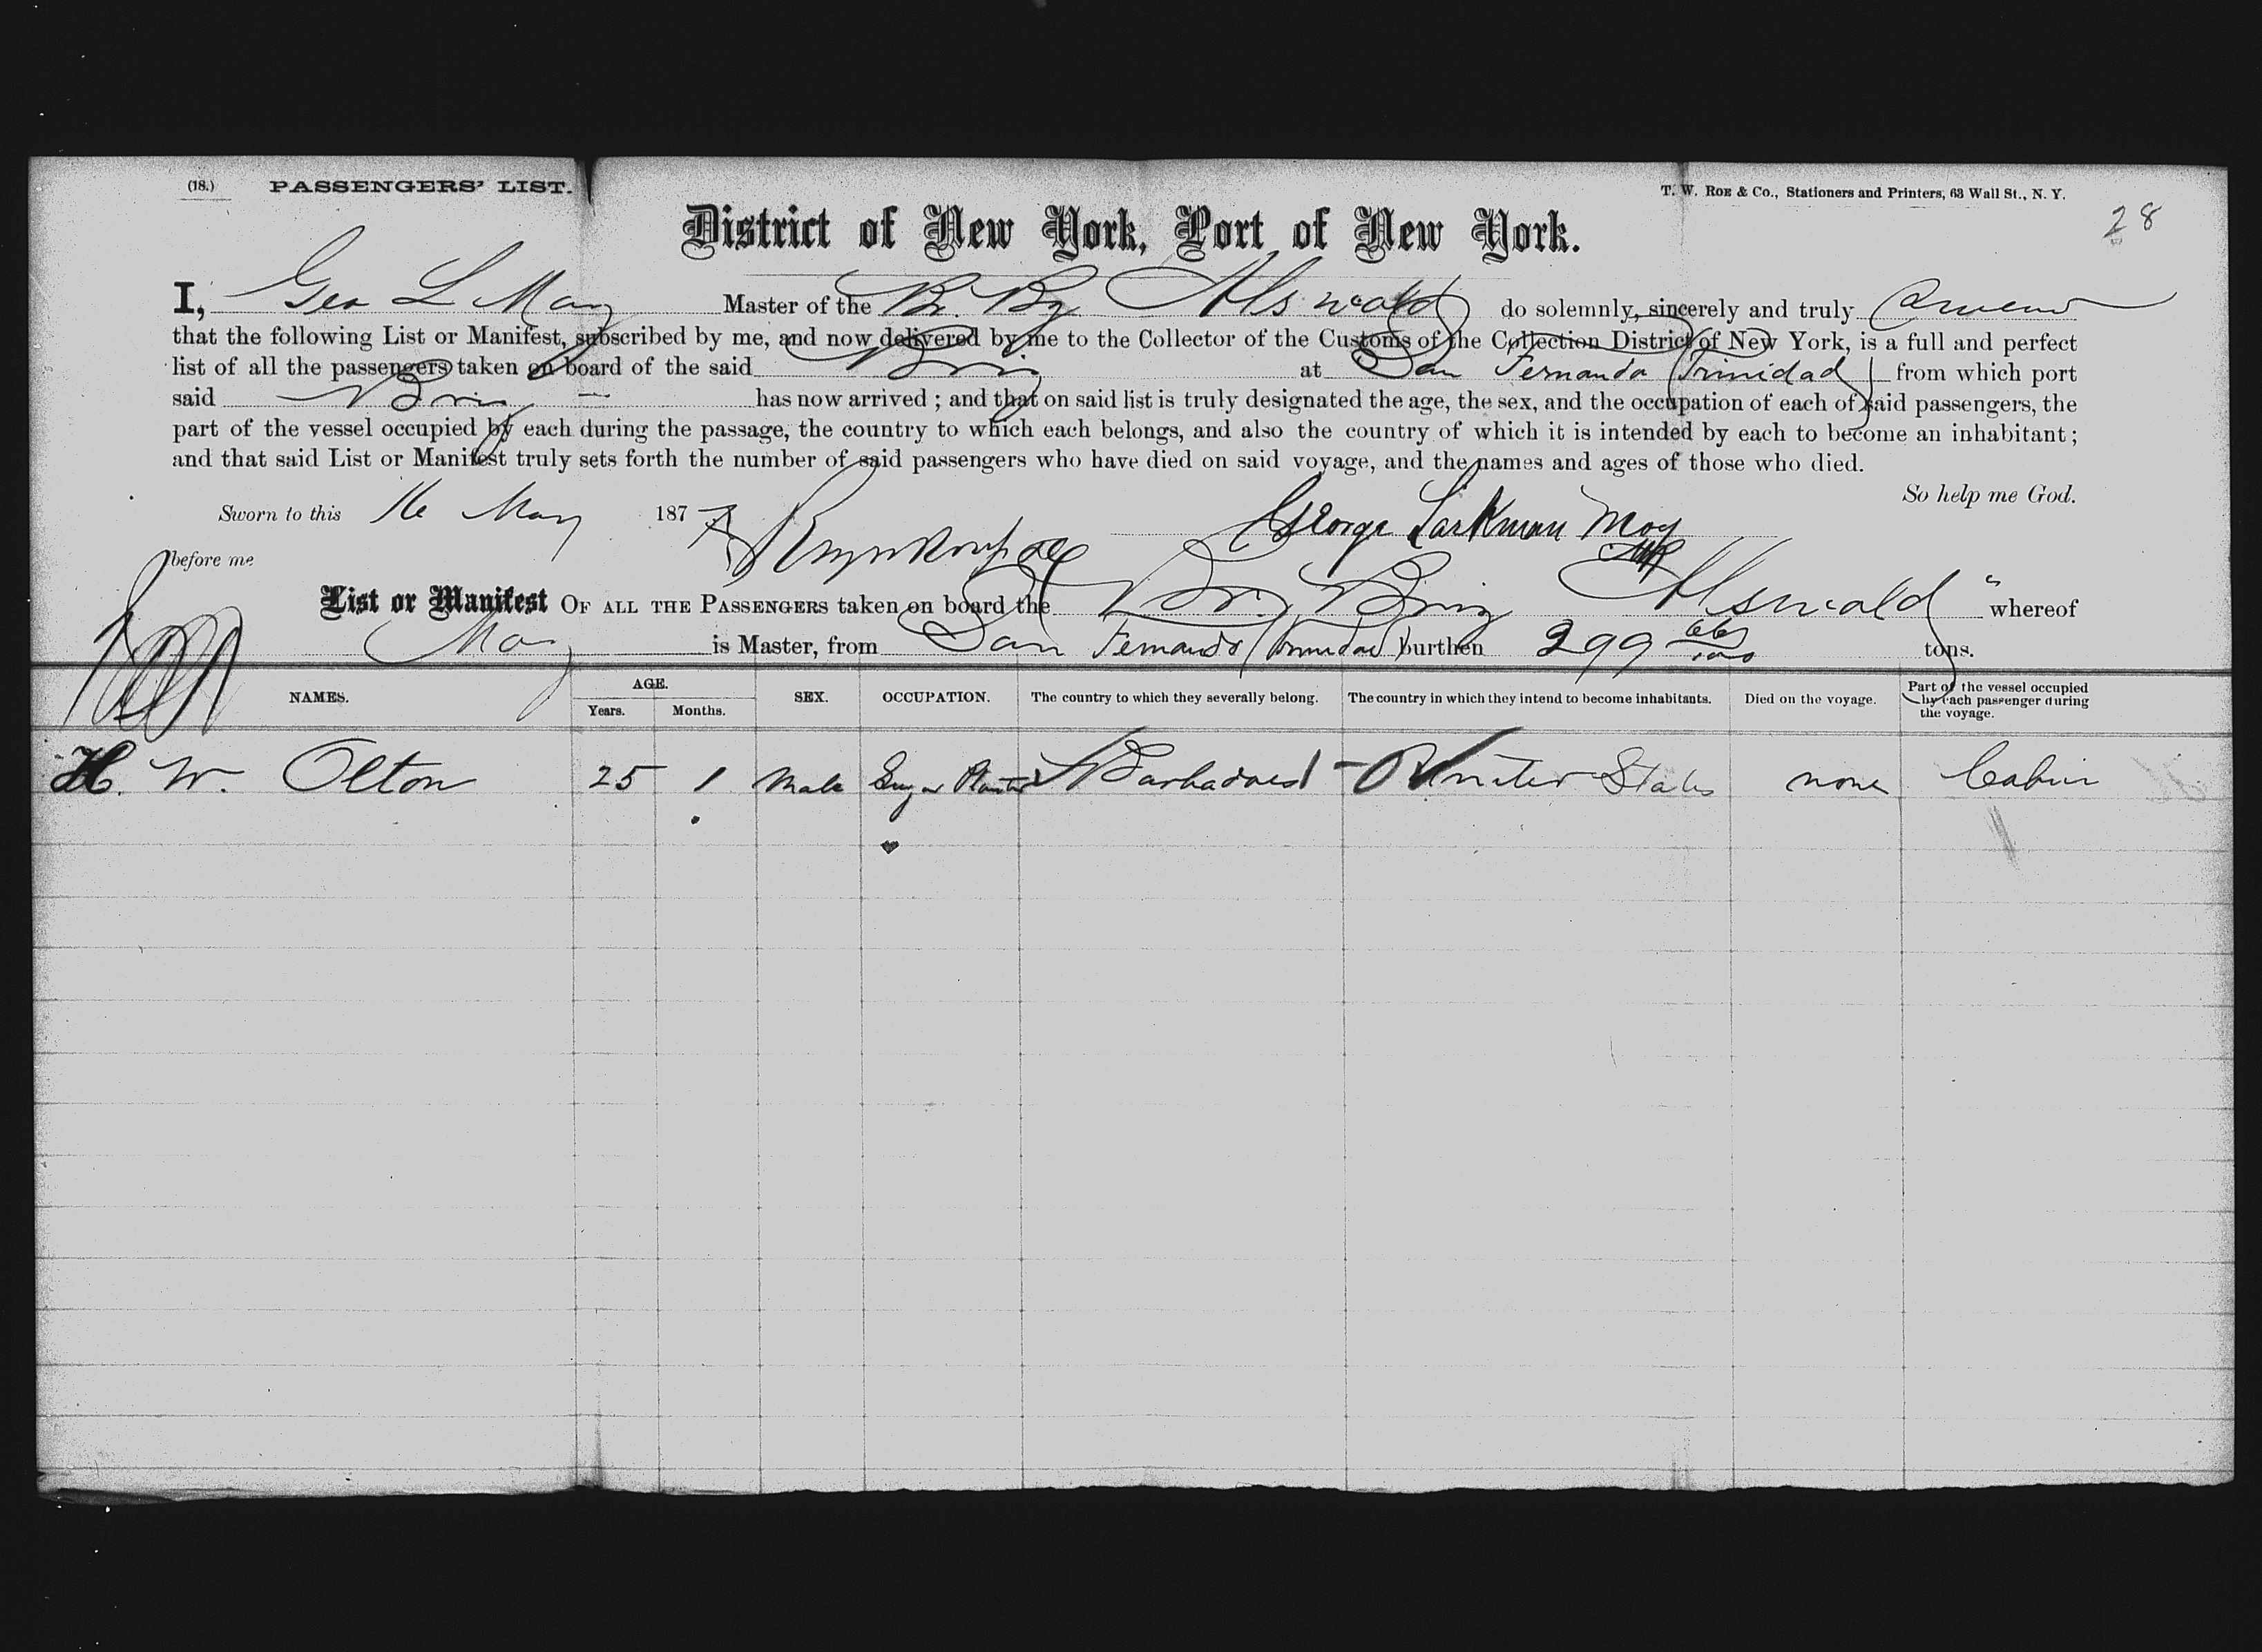 (18.) PASSENGERS' LIST.
T. W. ROE & Co., Stationers and Printers, 63 Wall St., N. Y.
28
District of New York, Port of New York.
I, Geo L May Master of the Br. Bg Alswold do solemnly, sincerely and truly swear
that the following List or Manifest, subscribed by me, and now delivered by me to the Collector of the Customs of the Collection District of New York, is a full and perfect
list of all the passengers taken on board of the said Brig at San Fernando (Trinidad) from which port
said Brig has now arrived ; and that on said list is truly designated the age, the sex, and the occupation of each of said passengers, the
part of the vessel occupied by each during the passage, the country to which each belongs, and also the country of which it is intended by each to become an inhabitant ;
and that said List or Manifest truly sets forth the number of said passengers who have died on said voyage, and the names and ages of those who died.
So help me God.
Sworn to this 16 May 1877 George Larkman May
before me
List or Manifest OF ALL THE PASSENGERS taken on board the Br. Brig Alswald " whereof
May is Master, from San Fernando (Trinidad) burthen 299 tons.
NAMES. AGE. Years. Months. SEX. OCCUPATION. The country to which they severally belong. The country in which they intend to become inhabitants. Died on the voyage. Part of the vessel occupied by each passenger during the voyage.
H. W. Olton 25 1 Male Sugar Planter Barbadoes United States none Cabin